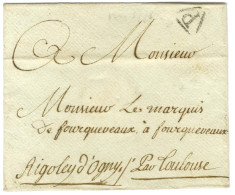 P
A Monsieur
Monsieur Le marquis
De fourquevaux à fourquevaux
Rigoley d'ogny Par Toulouse